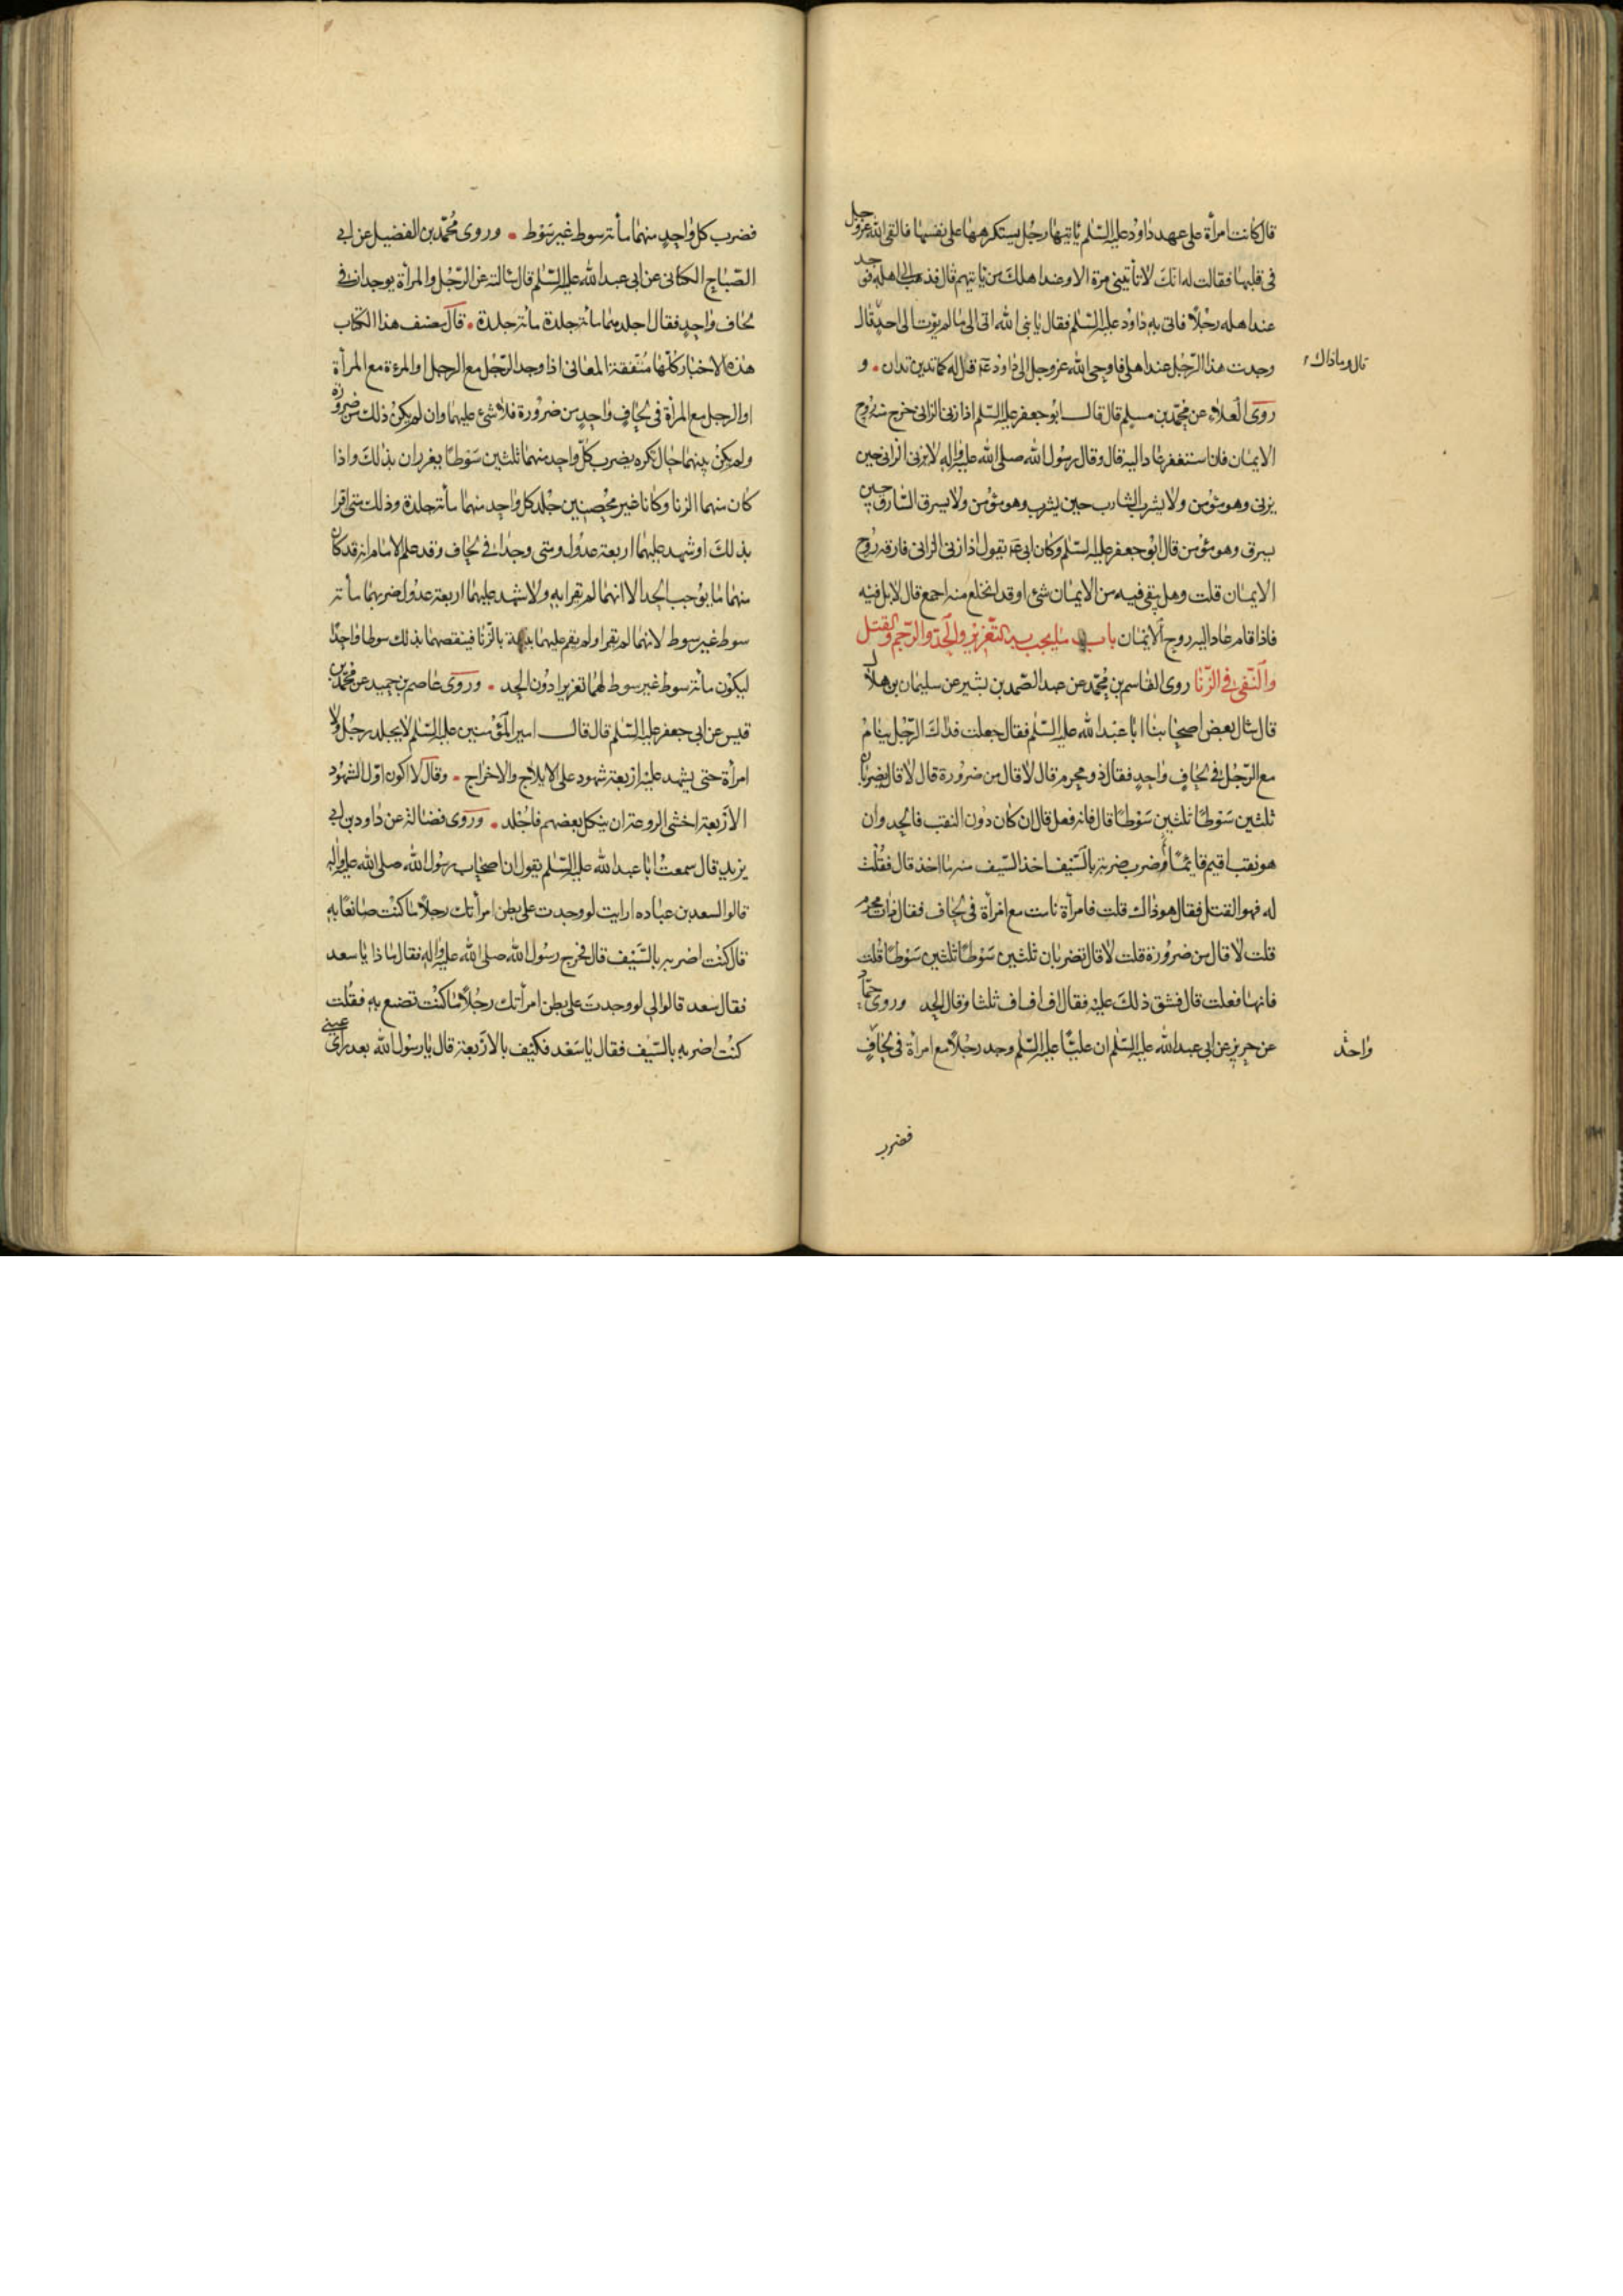 قال كانت امرأة على عهد داود عليه السّلم ياتيها رجل يستكرهها على نفسها فالقى الله عزوجل
فى قلبها فقالت له انّك لا تأتينى مرة الا وعند اهلك من ياتيهم قال فذهب الى اهله فوجد
عند اهله رجلا فاتى به داود عليه السّلم فقال يا نبى الله اتى الى ما لم يؤت الى احد قال
قال وما ذاك
وجدت هذا الرّجل عند اهلى فاوحى الله عز وجل الى داود ع قل له كما تدين تدان . و
روى العلاء عن محمّد بن مسلم قال قال ابو جعفر عليه السّلم اذا زنى الزانى خرج منه روح
الايمان فان استغفر عاد اليه قال وقال رسول الله صلى الله عليه واله لا يزنى الزانى حين
يزنى وهو مؤمن ولا يشرب الشارب حين يشرب وهو مؤمن ولا يسرق السّارق حين
يسرق وهو مؤمن قال ابو جعفر عليه السّلم وكان ابى ع يقول اذا زنى الزانى فارقه روح
الايمان قلت وهل يبقى فيه من الايمان شئ او قد انخلع منه اجمع قال لا بل فيه
فاذا قام عاد اليه روح الايمان باب ما يجب به التّعزير والحدّ والرّجم والقتل
والنّفى فى الزّنا روى القاسم بن محمّد عن عبد الصّمد بن بشير عن سليمان بن هلال
قال سال بعض اصحابنا ابا عبد الله عليه السّلم فقال جعلت فداك الرّجل ينام
مع الرّجل فى لحاف واحد فقال ذو محرم قال لا قال من ضرورة قال لا قال يضربان
ثلثين سوطا ثلثين سوطا قال فانه فعل قال ان كان دون النقب فالحد وان
هو نقب اقيم قائما وضرب ضربة بالسّيف اخذ السّيف منه ما اخذ قال فقلت
له فهو القتل فقال هو ذاك قلت فامرأة نامت مع امرأة فى لحاف فقال ذات محرم
قلت لا قال من ضرورة قلت لا قال تضربان ثلثين سوطا ثلثين سوطا قلت
فانها فعلت قال فشق ذلك عليه فقال اف اف اف ثلثا وقال الحد وروى حمّاد
عن حريز عن ابى عبد الله عليه السّلم ان عليّا عليه السّلم وجد رجلا مع امرأة فى لحاف
واحد
فضرب
فضرب كل واحد منهما مأته سوط غير سوط . وروى محمّد بن الفضيل عن ابى
الصّباح الكنانى عن ابى عبد الله عليه السّلم قال سالته عن الرّجل والمرأة يوجدان فى
لحاف واحد فقال اجلدهما مأته جلدة مأته جلدة . قال مصنف هذا الكتاب
هذه الاخبار كلّها متّفقة المعانى اذا وجد الرّجل مع الرجل او المرءة مع المرأة
او الرجل مع المرأة فى لحاف واحد من ضرورة فلا شئ عليهما وان لم يكن ذلك من ضرورة
ولم يكن بينهما حال تكره يضرب كلّ واحد منهما ثلثين سوطا يعزران بذلك واذا
كان منهما الزنا وكانا غير محصنين جلد كل واحد منهما مأته جلدة وذلك متى اقرا
بذلك او شهد عليهما اربعة عدول ومتى وجدا فى لحاف وقد علم الامام انه قد كان
منهما ما يوجب الحد الا انهما لم يقرا به ولا شهد عليهما اربعة عدول ضربهما مأته
سوط غير سوط لانهما لم يقرا ولم يقم عليهما بينة بالزّنا فينقصهما بذلك سوطا واحدا
ليكون مأته سوط غير سوط لهما تعزيرا دون الحد . وروى عاصم بن حميد عن محمّد بن
قيس عن ابى جعفر عليه السّلم قال قال امير المؤمنين عليه السّلم لا يجلد رجل ولا
امرأة حتى يشهد عليه اربعة شهود على الايلاج والاخراج . وقال لا اكون اوّل الشهود
الاربعة اخشى الروعة ان ينكل بعضهم فاجلد . وروى فضالة عن داود بن ابى
يزيد قال سمعت ابا عبد الله عليه السّلم يقول ان اصحاب رسول الله صلى الله عليه واله
قالوا لسعد بن عباده ارايت لو وجدت على بطن امرأتك رجلا ما كنت صانعا به
قال كنت اضربه بالسّيف قال فخرج رسول الله صلى الله عليه واله فقال ما ذا يا سعد
فقال سعد قالوا لى لو وجدت على بطن امرأتك رجلا ما كنت تصنع به فقلت
كنت اضربه بالسّيف فقال يا سعد فكيف بالاربعة قال يا رسول الله بعد راى عينى